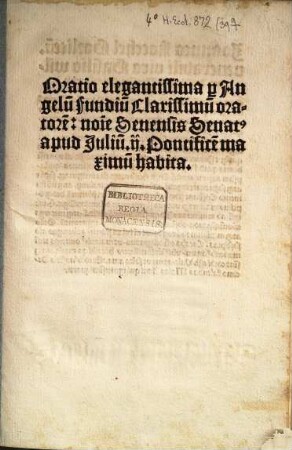 4° H. Eccl. 872 (39
Oratio elegantissima p An
gelũ fundiũ Clarissimũ ora-
torẽ: noĩe Senensis Senatꝰ
apud Juliũ. ij. Pontificẽ ma
ximũ habita.
BIBLIOTHECA
REGIA
MONACENSIS.